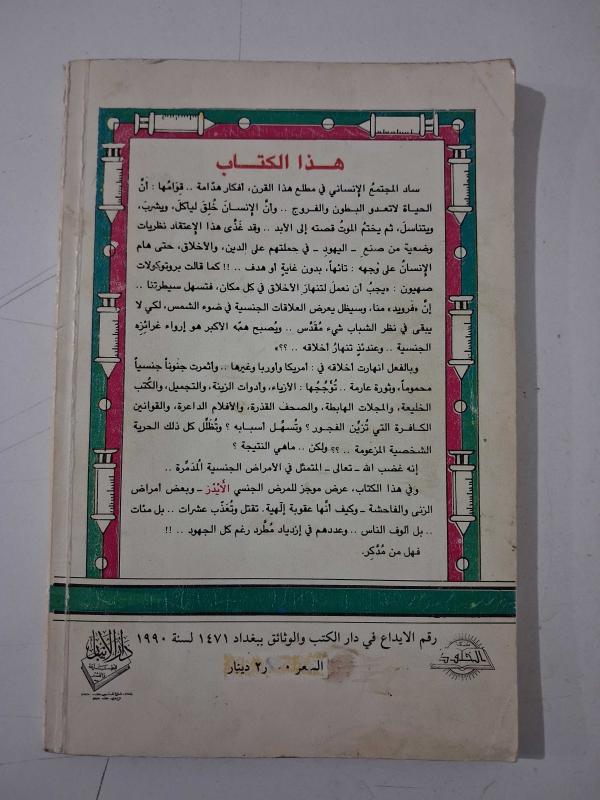 هذا الكتاب
ساد المجتمعُ الإنساني في مطلع هذا القرن، أفكار هدّامة .. قوامُها : أنّ
الحياة لاتعدو البطون والفروج .. وأنّ الإنسانَ خُلِقَ لياكلَ، ويشربَ،
ويتناسلَ، ثم يختمُ الموتُ قصته إلى الأبد .. وقد غذّى هذا الإعتقاد نظريات
وضعية من صنع ـ اليهود ـ في حملتهم على الدين، والأخلاق، حتى هام
الإنسانُ على وُجهه : تائهاً، بدون غايةٍ أو هدف .. !! كما قالت بروتوكولات
صهيون : «يجبُ أن نعملَ لتنهارَ الأخلاق في كل مكان، فتسهل سيطرتنا ..
إنّ «فرويد» منا، وسيظل يعرض العلاقات الجنسية في ضوء الشمس، لكي لا
يبقى في نظر الشباب شيء مُقدّس .. ويُصبح همّه الأكبر هو إرواء غرائزه
الجنسية .. وعندئذٍ تنهارُ أخلاقه .. ؟؟»
وبالفعل انهارت أخلاقه في : أمريكا وأوربا وغيرها .. وأثمرت جنوناً جنسياً
محموماً، وثورة عارمة .. تُؤجّجُها : الأزياء، وأدوات الزينة، والتجميل، والكُتب
الخليعة، والمجلات الهابطة، والصحف القذرة، والأفلام الداعرة، والقوانين
الكافرة التي تُزيّن الفجور ؟ وتُسهّل أسبابه ؟ وتُظلّل كل ذلك الحرية
الشخصية المزعومة .. ؟؟ ولكن .. ماهي النتيجة ؟
إنه غضب الله ـ تعالى ـ المتمثل في الأمراض الجنسية المُدمّرة ..
وفي هذا الكتاب، عرض موجز للمرض الجنسي الأيْدْز ـ وبعض أمراض
الزنى والفاحشة ـ وكيف أنّها عقوبة إلهية. تقتل وتُعذّب عشرات .. بل مئات
.. بل ألوف الناس .. وعددهم في إزدياد مُطّرد رغم كل الجهود .. !!
فهل من مُدّكِر.
رقم الايداع في دار الكتب والوثائق ببغداد ١٤٧١ لسنة ١٩٩٠
دار الأنبار
الخلود
السعر ر٢ دينار